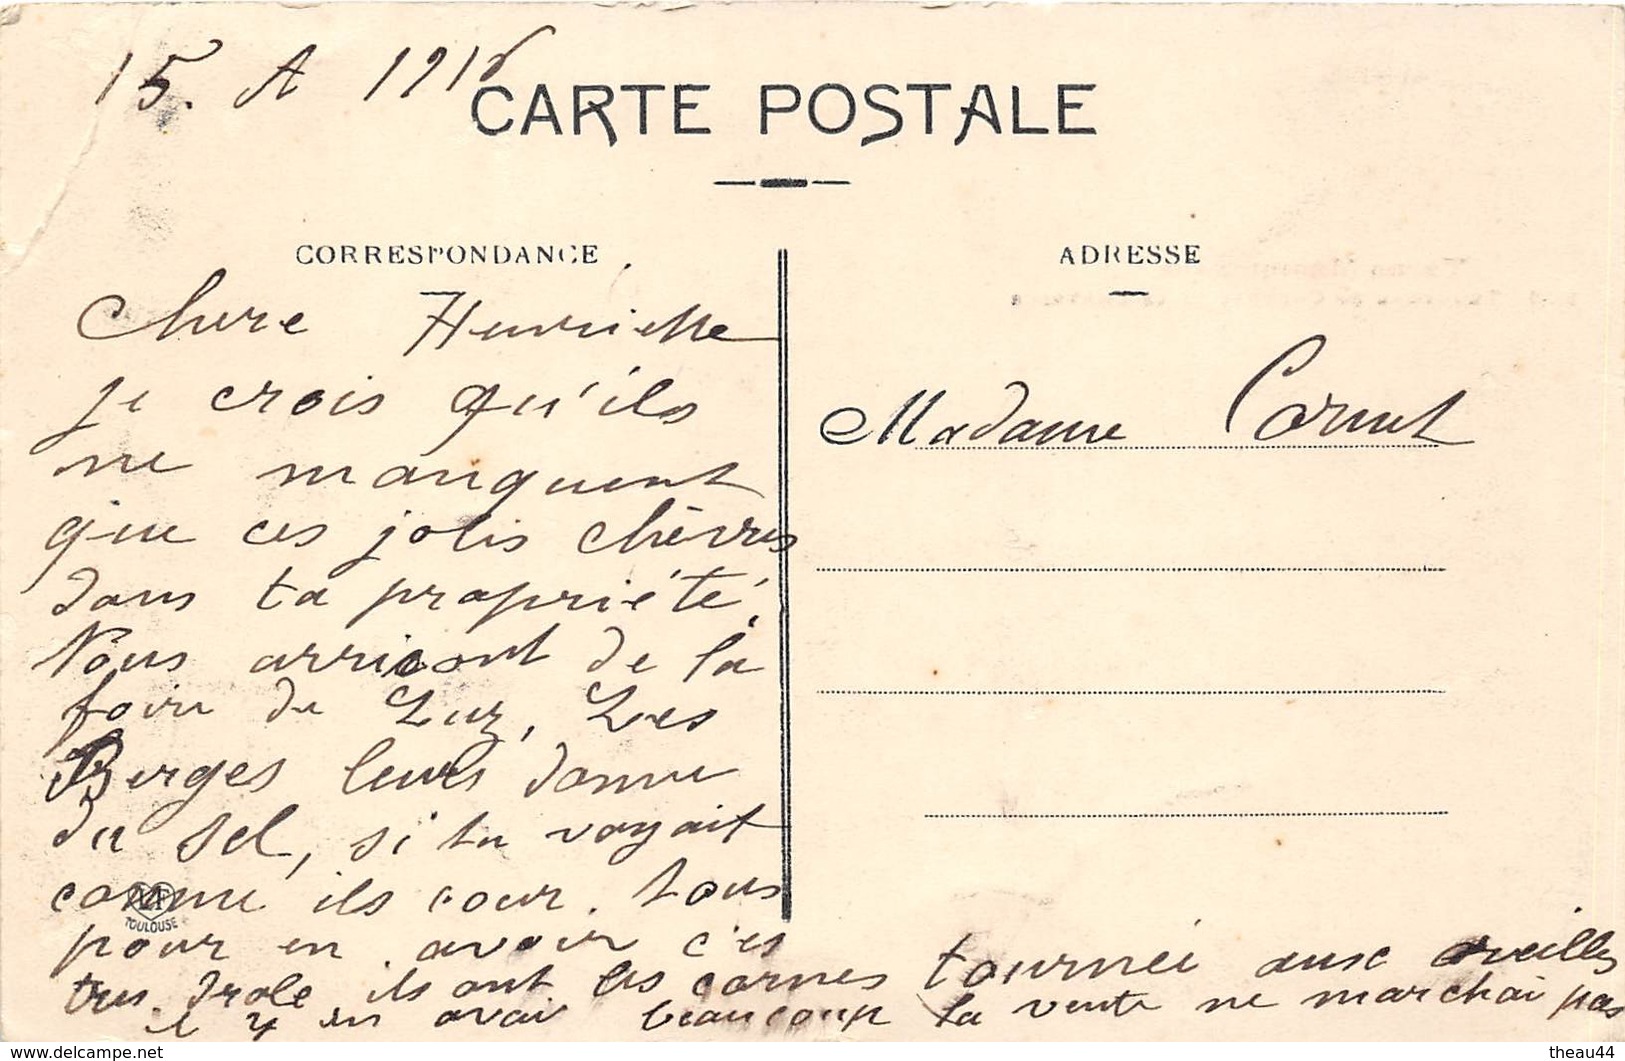 15. A 1916
CARTE POSTALE
CORRESPONDANCE
ADRESSE
Chere Henriette
je crois qu'ils
ne manquent
que ces jolis chèvres
dans ta propriété.
Nous arriront de la
foire de Luz, Les
Berges leurs donne
du sel, si tu voyait
comme ils cour. tous
pour en avoir c'es
tres drole ils ont les cornes tournéi aux oreilles
il y en avai beaucoup la vente ne marchai pas
Madame Cornet
TOULOUSE
theau44
www.delcampe.net